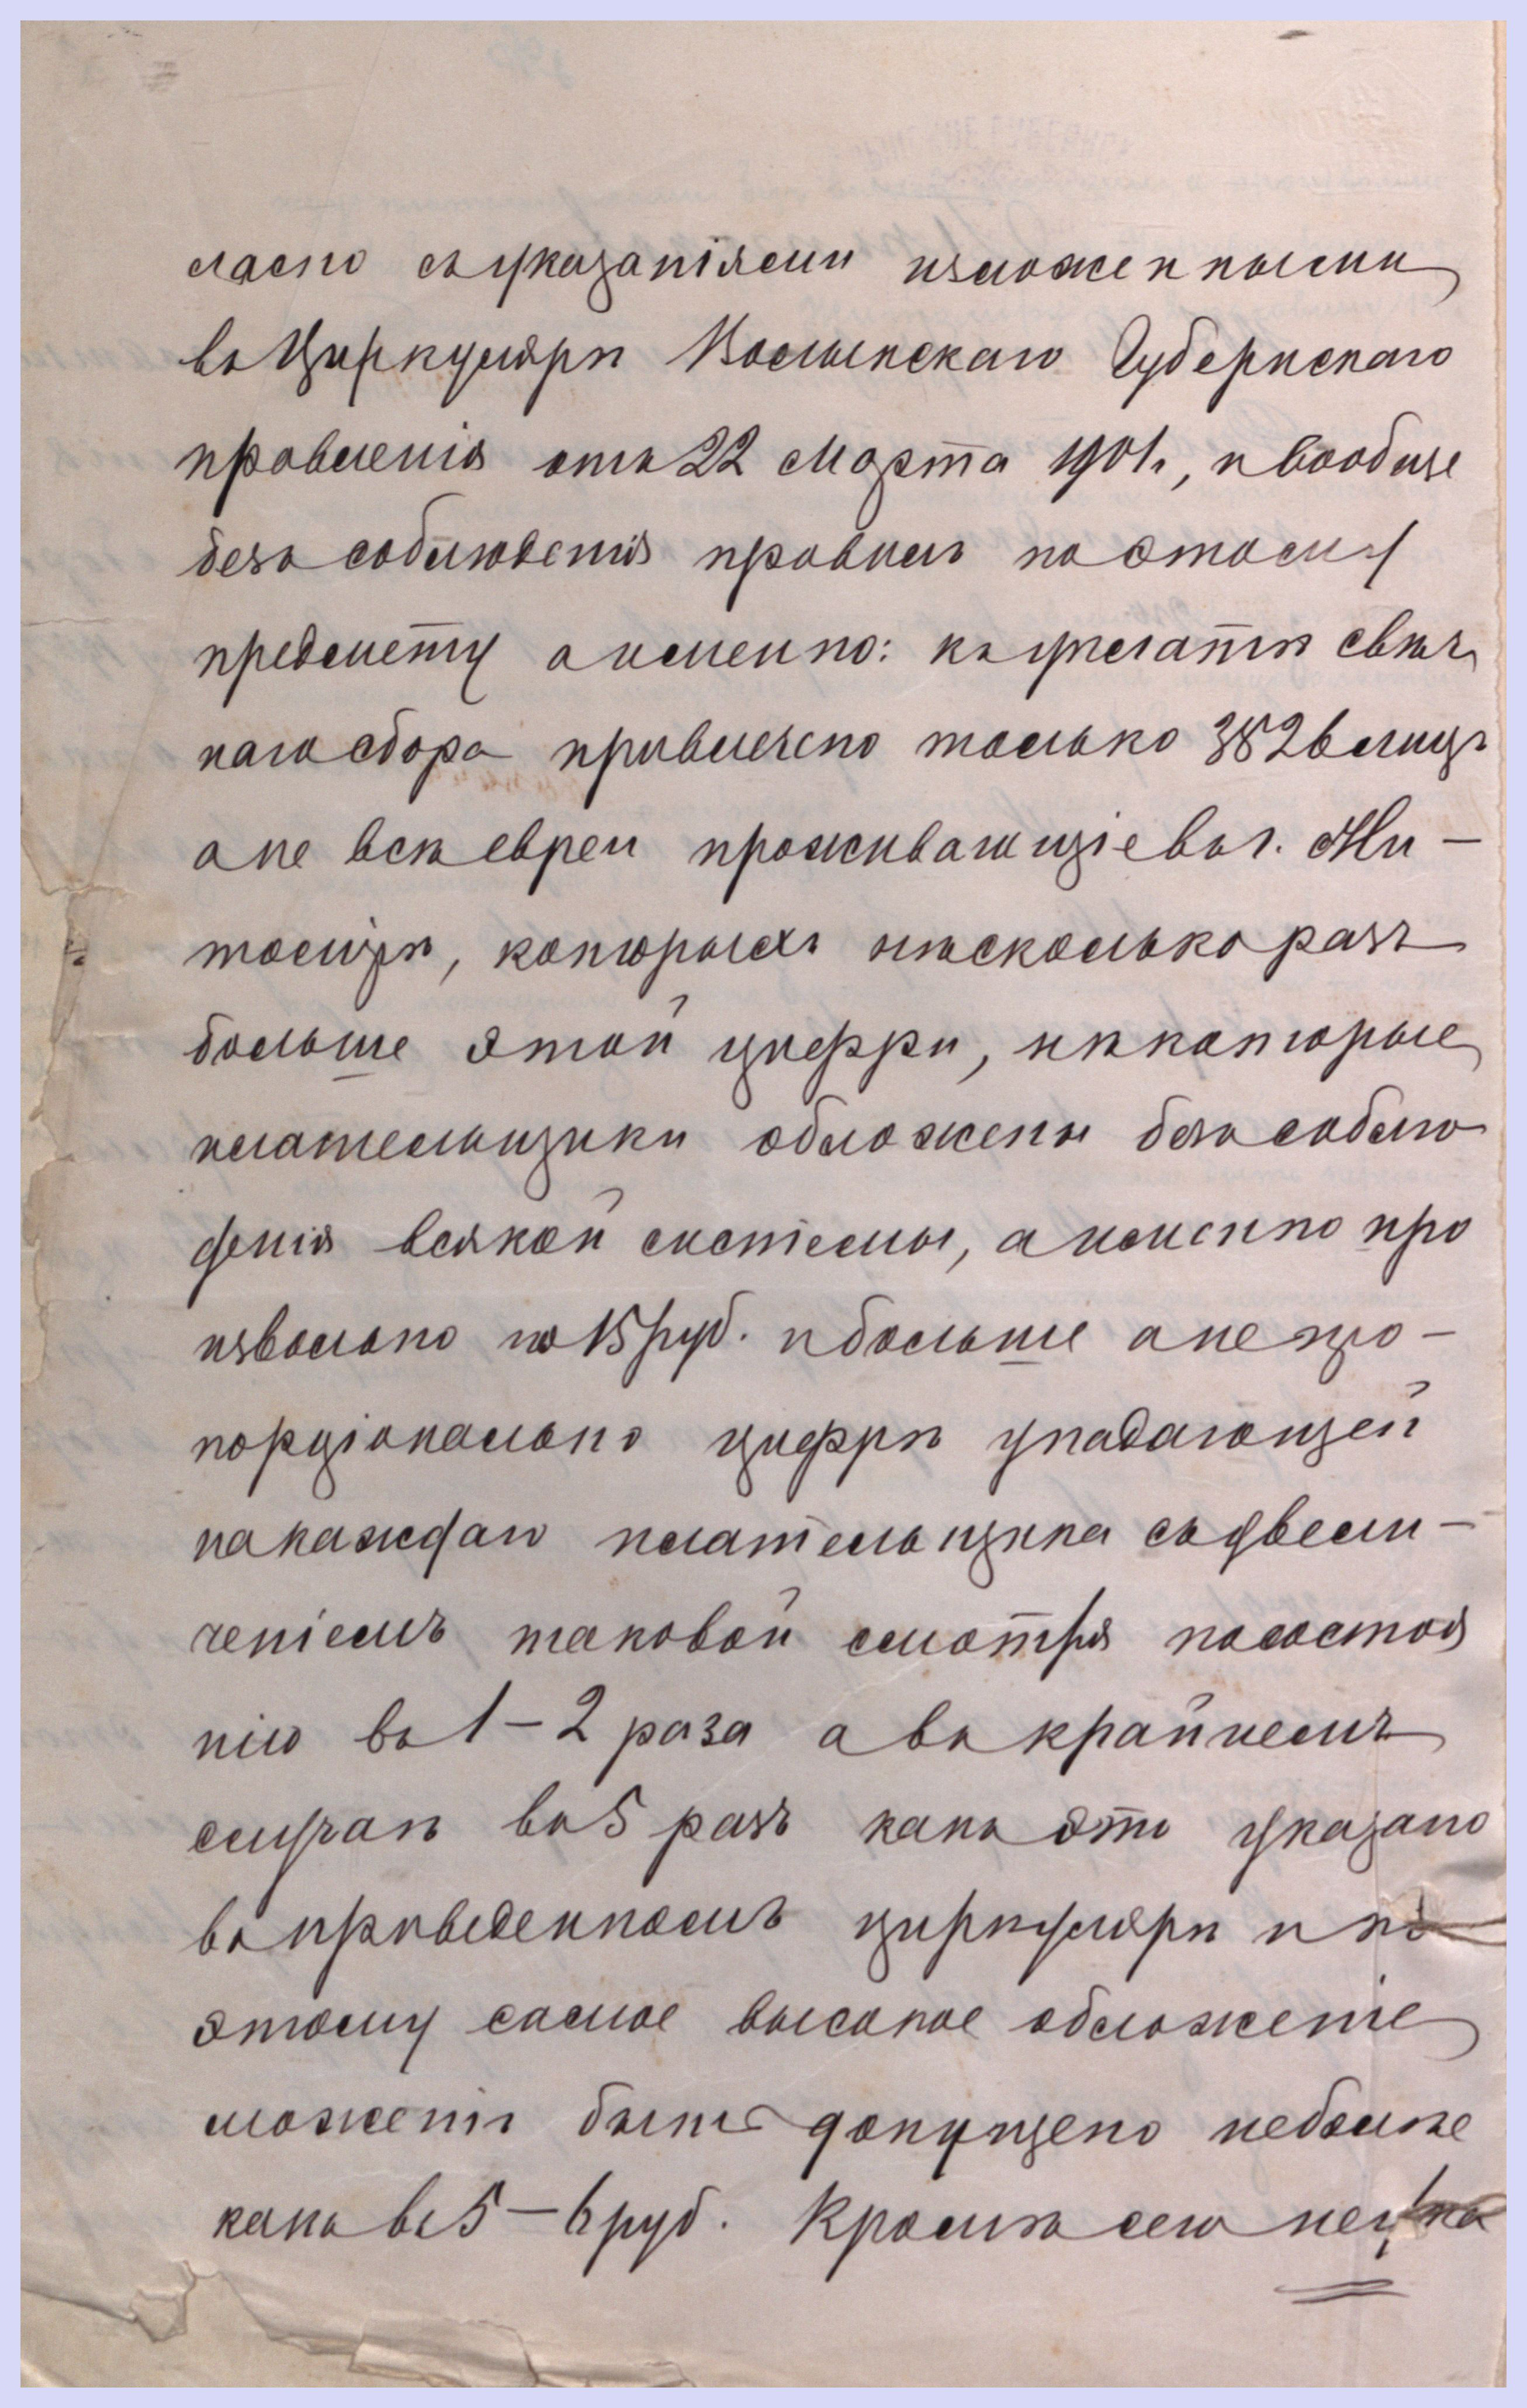 ласно съ указаніями изложенными
въ Циркулярѣ Волынскаго Губернскаго
правленія отъ 22 Марта 1901г, и вообще
безъ соблюденія правилъ по этому
предмету а именно: къ уплатѣ свѣч
наго сбора привлечено только 382 влицъ
а не всѣ евреи проживающіе въ г. Жи-
томірѣ, которыхъ нѣсколько разъ
больше этой цифри, нѣкоторые
плательщики обложены безъ соблю
денія всякой системы, а именно про
извольно по 15 руб. и больше а не про-
порціонально цифрѣ упадающей
на каждаго плательщика съ увели-
ченіемъ таковой смотря по состоя
нію въ 1-2 раза а въ крайнемъ
случаѣ въ 5 разъ какъ это указано
въ приведенномъ циркулярѣ и по
этому самое высокое обложеніе
можетъ быть допущено небольше
какъ въ 5-6 руб. Кромѣ сего неука